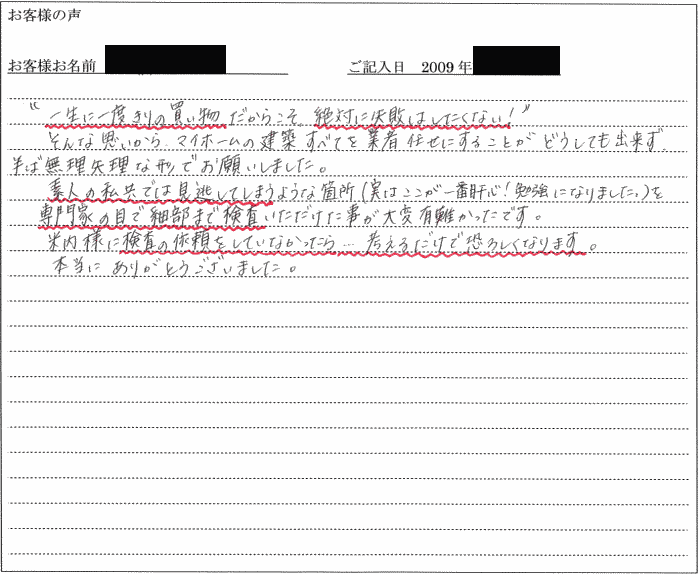 お客様の声
お客様お名前 ご記入日 2009年
“一生に一度きりの買い物だからこそ、絶対に失敗はしたくない！”
そんな思いから、マイホームの建築すべてを業者任せにすることがどうしても出来ず、
半ば無理矢理な形でお願いしました。
素人の私共では見逃してしまうような箇所（実はここが一番肝心！勉強になりました。）を
専門家の目で細部まで検査いただけた事が大変有難かったです。
米内様に検査の依頼をしていなかったら…考えるだけで恐ろしくなります。
本当にありがとうございました。